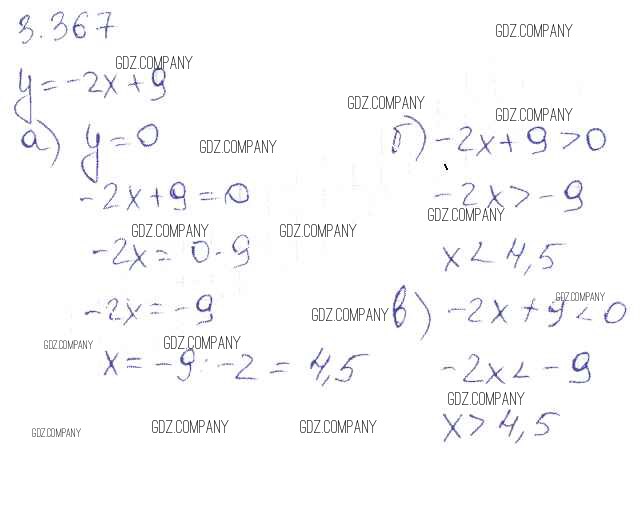 3.367
GDZ.COMPANY
GDZ.COMPANY
y = -2x + 9
GDZ.COMPANY
GDZ.COMPANY
а) y = 0
GDZ.COMPANY
-2x + 9 = 0
GDZ.COMPANY
GDZ.COMPANY
-2x = 0 - 9
-2x = -9
GDZ.COMPANY
GDZ.COMPANY
GDZ.COMPANY
x = -9 : -2 = 4,5
GDZ.COMPANY
GDZ.COMPANY
GDZ.COMPANY
б) -2x + 9 > 0
-2x > -9
GDZ.COMPANY
x < 4,5
GDZ.COMPANY
в) -2x + 9 < 0
-2x < -9
GDZ.COMPANY
x > 4,5